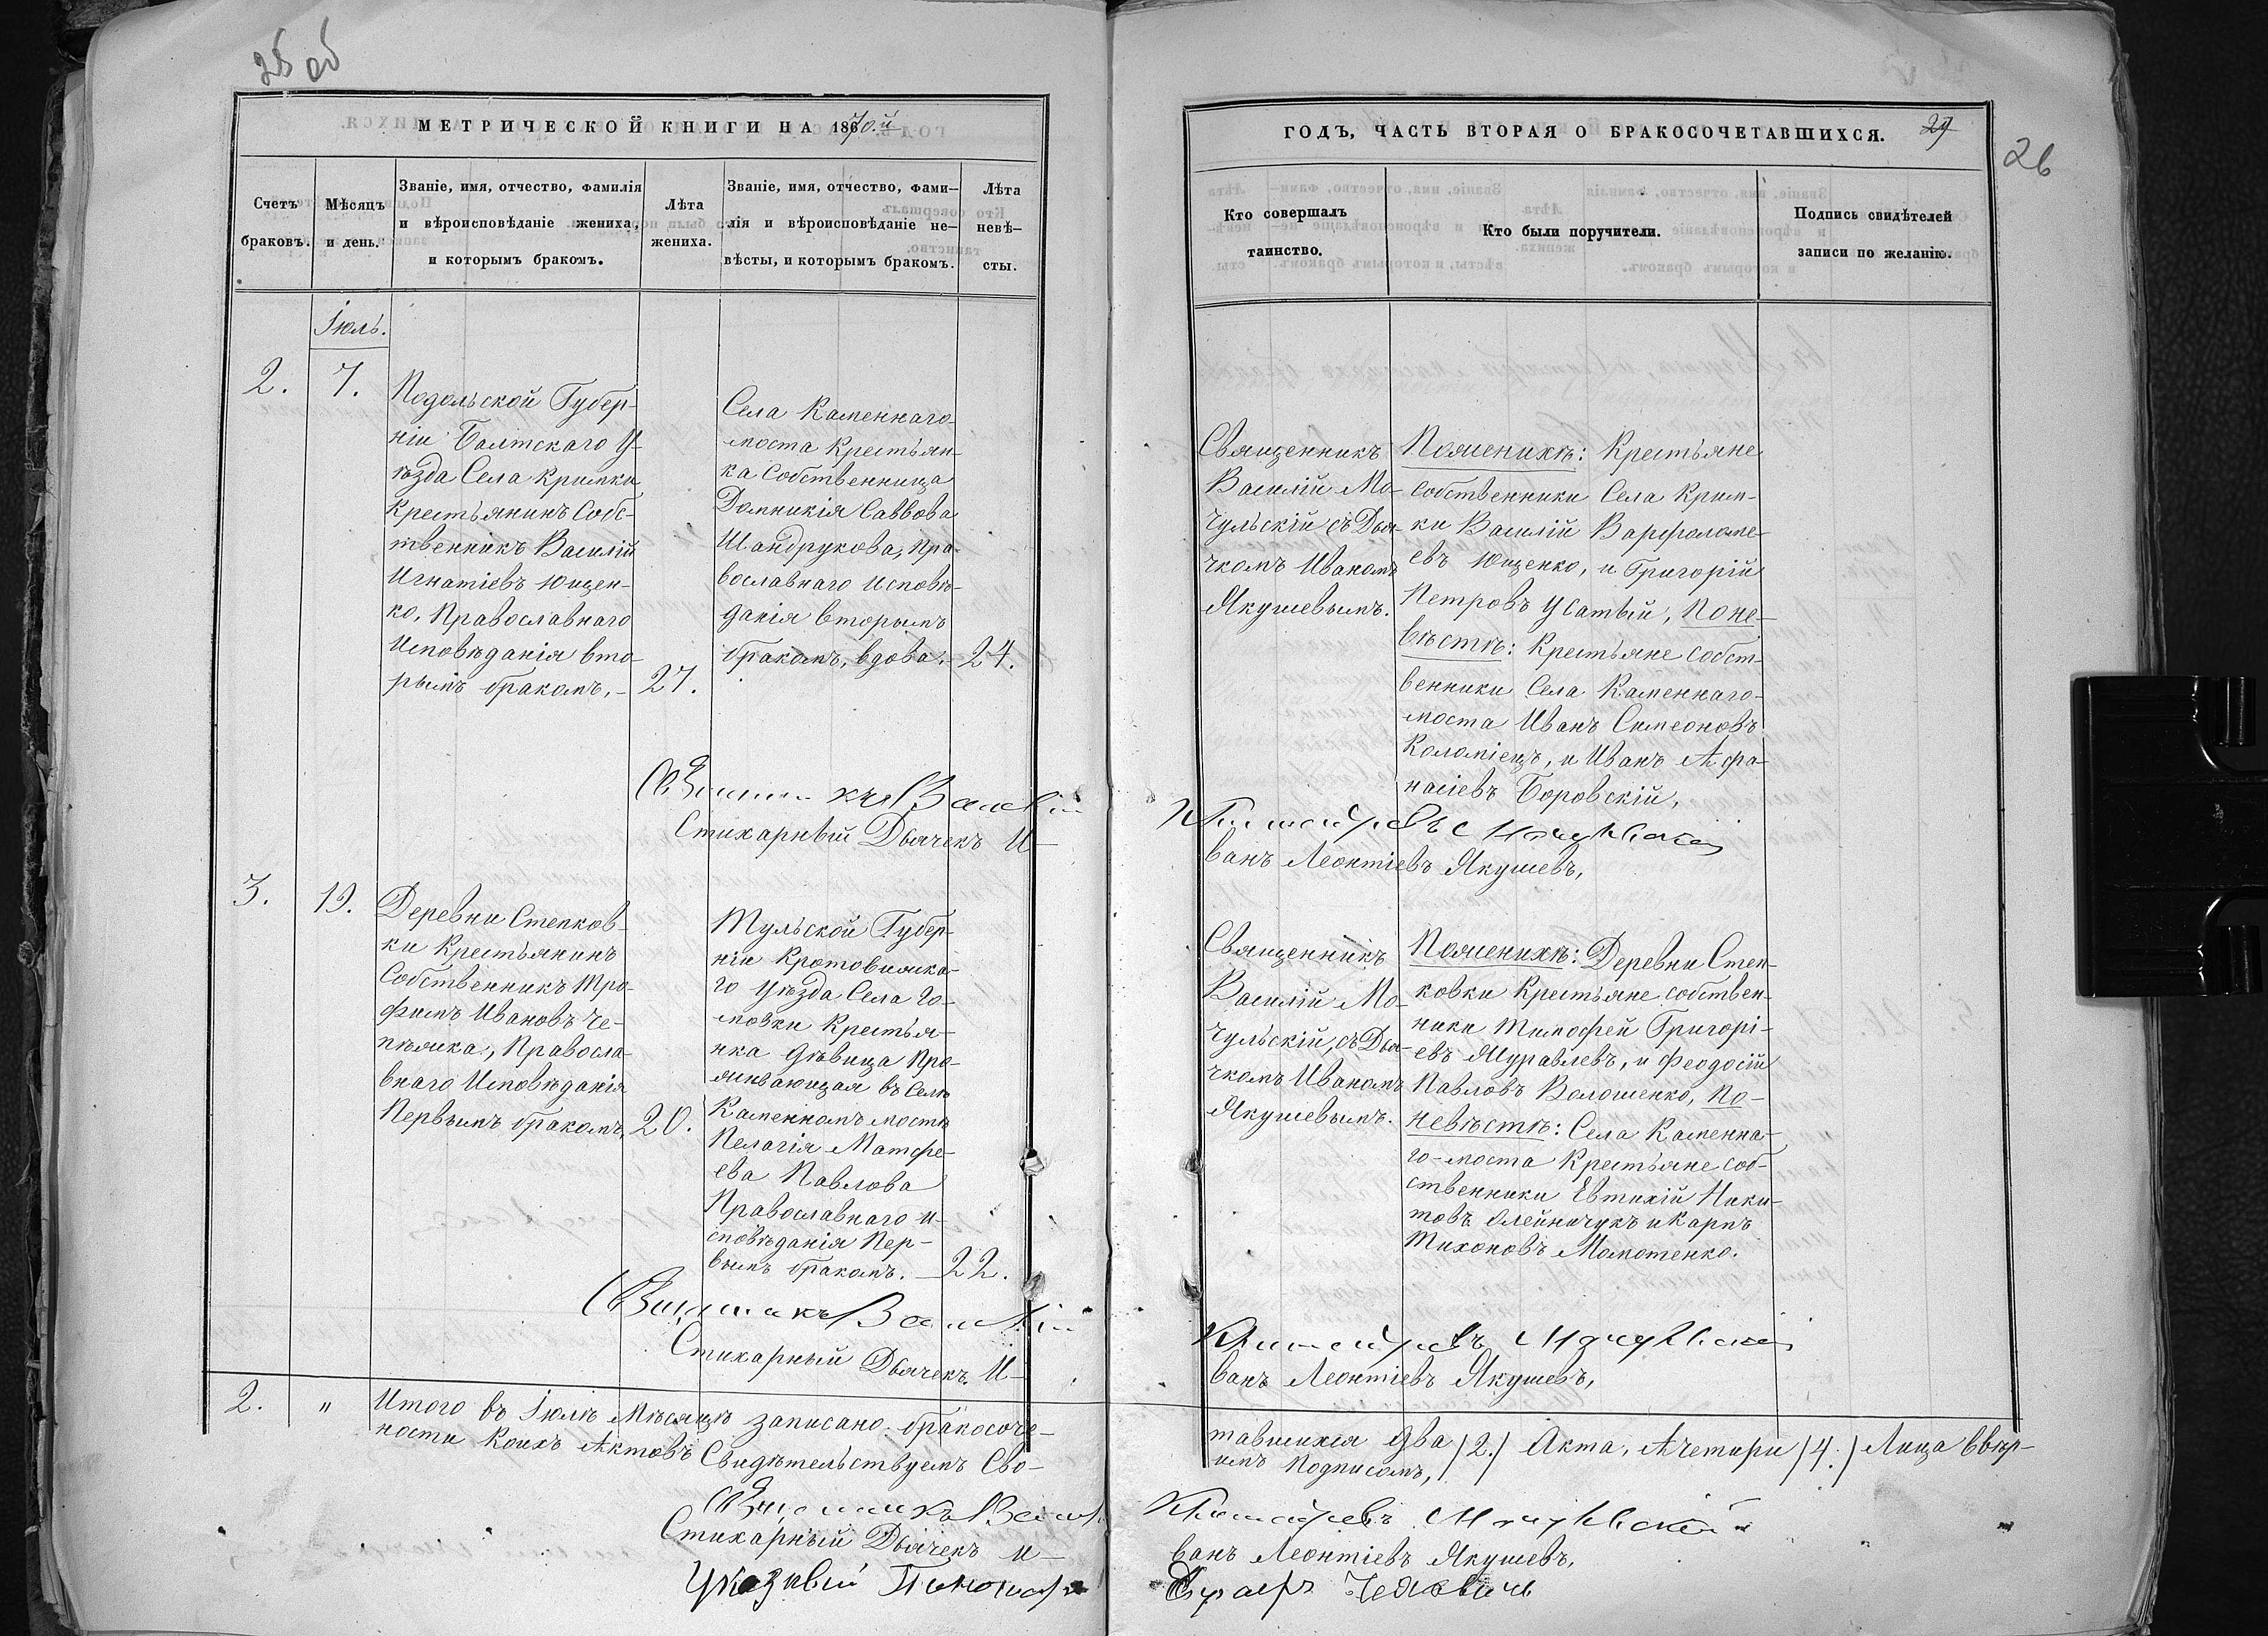 25 об
МЕТРИЧЕСКОЙ КНИГИ НА 1870.й
Счетъ
браковъ.
Мѣсяцъ
и день.
Званіе, имя, отчество, фамилія
и вѣроисповѣданіе жениха,
и которымъ бракомъ.
Лѣта
жениха.
Званіе, имя, отчество, фами—
лія и вѣроисповѣданіе не—
вѣсты, и которымъ бракомъ.
Лѣта
невѣ—
сты.
Іюль.
2.
7.
Подольской Губер-
ніи Балтскаго У-
ѣзда Села Кримки
Крестьянинъ Собс-
твенникъ Василій
Игнатіевъ Ющен-
ко, Православнаго
Исповѣданія вто-
рымъ бракомъ. -
27.
Села Каменнаго-
моста Крестьян-
ка Собственница
Домникія Саввова
Шандрукова, Пра-
вославнаго Исповѣ-
данія вторымъ
бракомъ, вдова. -
24.
Василій
Стихарный Дьячекъ И-
3.
19.
Деревни Степков-
ки Крестьянинъ
Собственникъ Тро-
фимъ Ивановъ Че-
Правосла-
внаго Исповѣданія
Первымъ бракомъ,
20.
Тульской Губер-
ніи
го Уѣзда Села Го-
мовки Крестья-
нка Дѣвица Про-
живающая въ Селѣ
Каменномъ мостѣ
Пелагія Матфе-
ева Павлова
Православнаго и-
сповѣданія Пер-
вымъ бракомъ. -
22.
Священникъ Василій
Стихарный Дьячекъ И-
2.
"
Итого въ Іюлѣ Мѣсяцѣ записано бракосоче-
ности Коихъ Актовъ Свидѣтельствуемъ Сво-
Священникъ
Стихарный Дьячекъ И-
Указный Пономарь
ГОДЪ, ЧАСТЬ ВТОРАЯ О БРАКОСОЧЕТАВШИХСЯ.
29
26
Кто совершалъ
таинство.
Кто были поручители.
Подпись свидѣтелей
записи по желанію.
Священникъ
Василій Мо-
чульскій съ Дья-
чкомъ Иваномъ
Якушевымъ.
По женихѣ: Крестьяне
собственники Села Крим-
ки Василій Варфоломе-
евъ Ющенко, и Григорій
Петровъ Усатый, По не-
вѣстѣ: Крестьяне собст-
венники Села Каменнаго-
моста Иванъ Симеоновъ
Коломіецъ, и Иванъ Афа-
насіевъ Боровскій,
Мочульскій
ванъ Леонтіевъ Якушевъ,
Священникъ
Василій Мо-
чульскій, съ Дья-
чкомъ Иваномъ
Якушевымъ.
По женихѣ: Деревни Степ-
ковки Крестьяне собствен-
ники Тимофей Григорі-
евъ Журавлевъ, и Феодосій
Павловъ Волошенко, По-
невѣстѣ: Села Каменна-
го-моста Крестьяне соб-
ственники Евтихій Ники-
товъ Олейничукъ и Карпъ
Тихоновъ
Мочульскій
ванъ Леонтіевъ Якушевъ,
тавшихся два /2./ Акта, А четыри /4./ Лица Ввѣр-
имъ Подписомъ,
Мочульскій
ванъ Леонтіевъ Якушевъ,